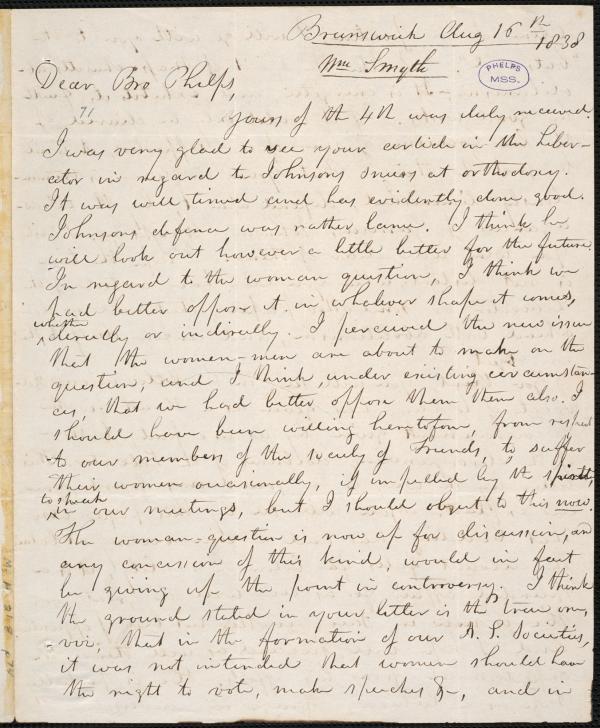 Brunswick Aug 16th 1838
Wm Smyth
PHELPS
MSS.
Dear Bro Phelps,
71
yours of the 4th was duly received.
I was very glad to see your article in the Liber-
ator in regard to Johnsons sneers at orthodoxy.
It was well timed and has evidently done good.
Johnsons defence was rather lame. I think he
will look out however a little better for the future.
In regard to the woman question, I think we
had better oppose it in whatever shape it comes,
whether
directly or indirectly. I perceived the new issue
that the women-men are about to make on the
question, and I think, under existing circumstan-
ces, that we had better oppose them then also. I
should have been willing heretofore, from respect
to our members of the society of Friends, to suffer
their women occasionally, if impelled by the spirit,
to speak
in our meetings, but I should object to this now.
The woman-question is now up for discussion, and
any concession of this kind, would in fact
be giving up the point in controversy. I think
the ground stated in your letter is the true one,
viz, that in the formation of our A. S. Societies,
it was not intended that women should have
the right to vote, make speeches &c, and in